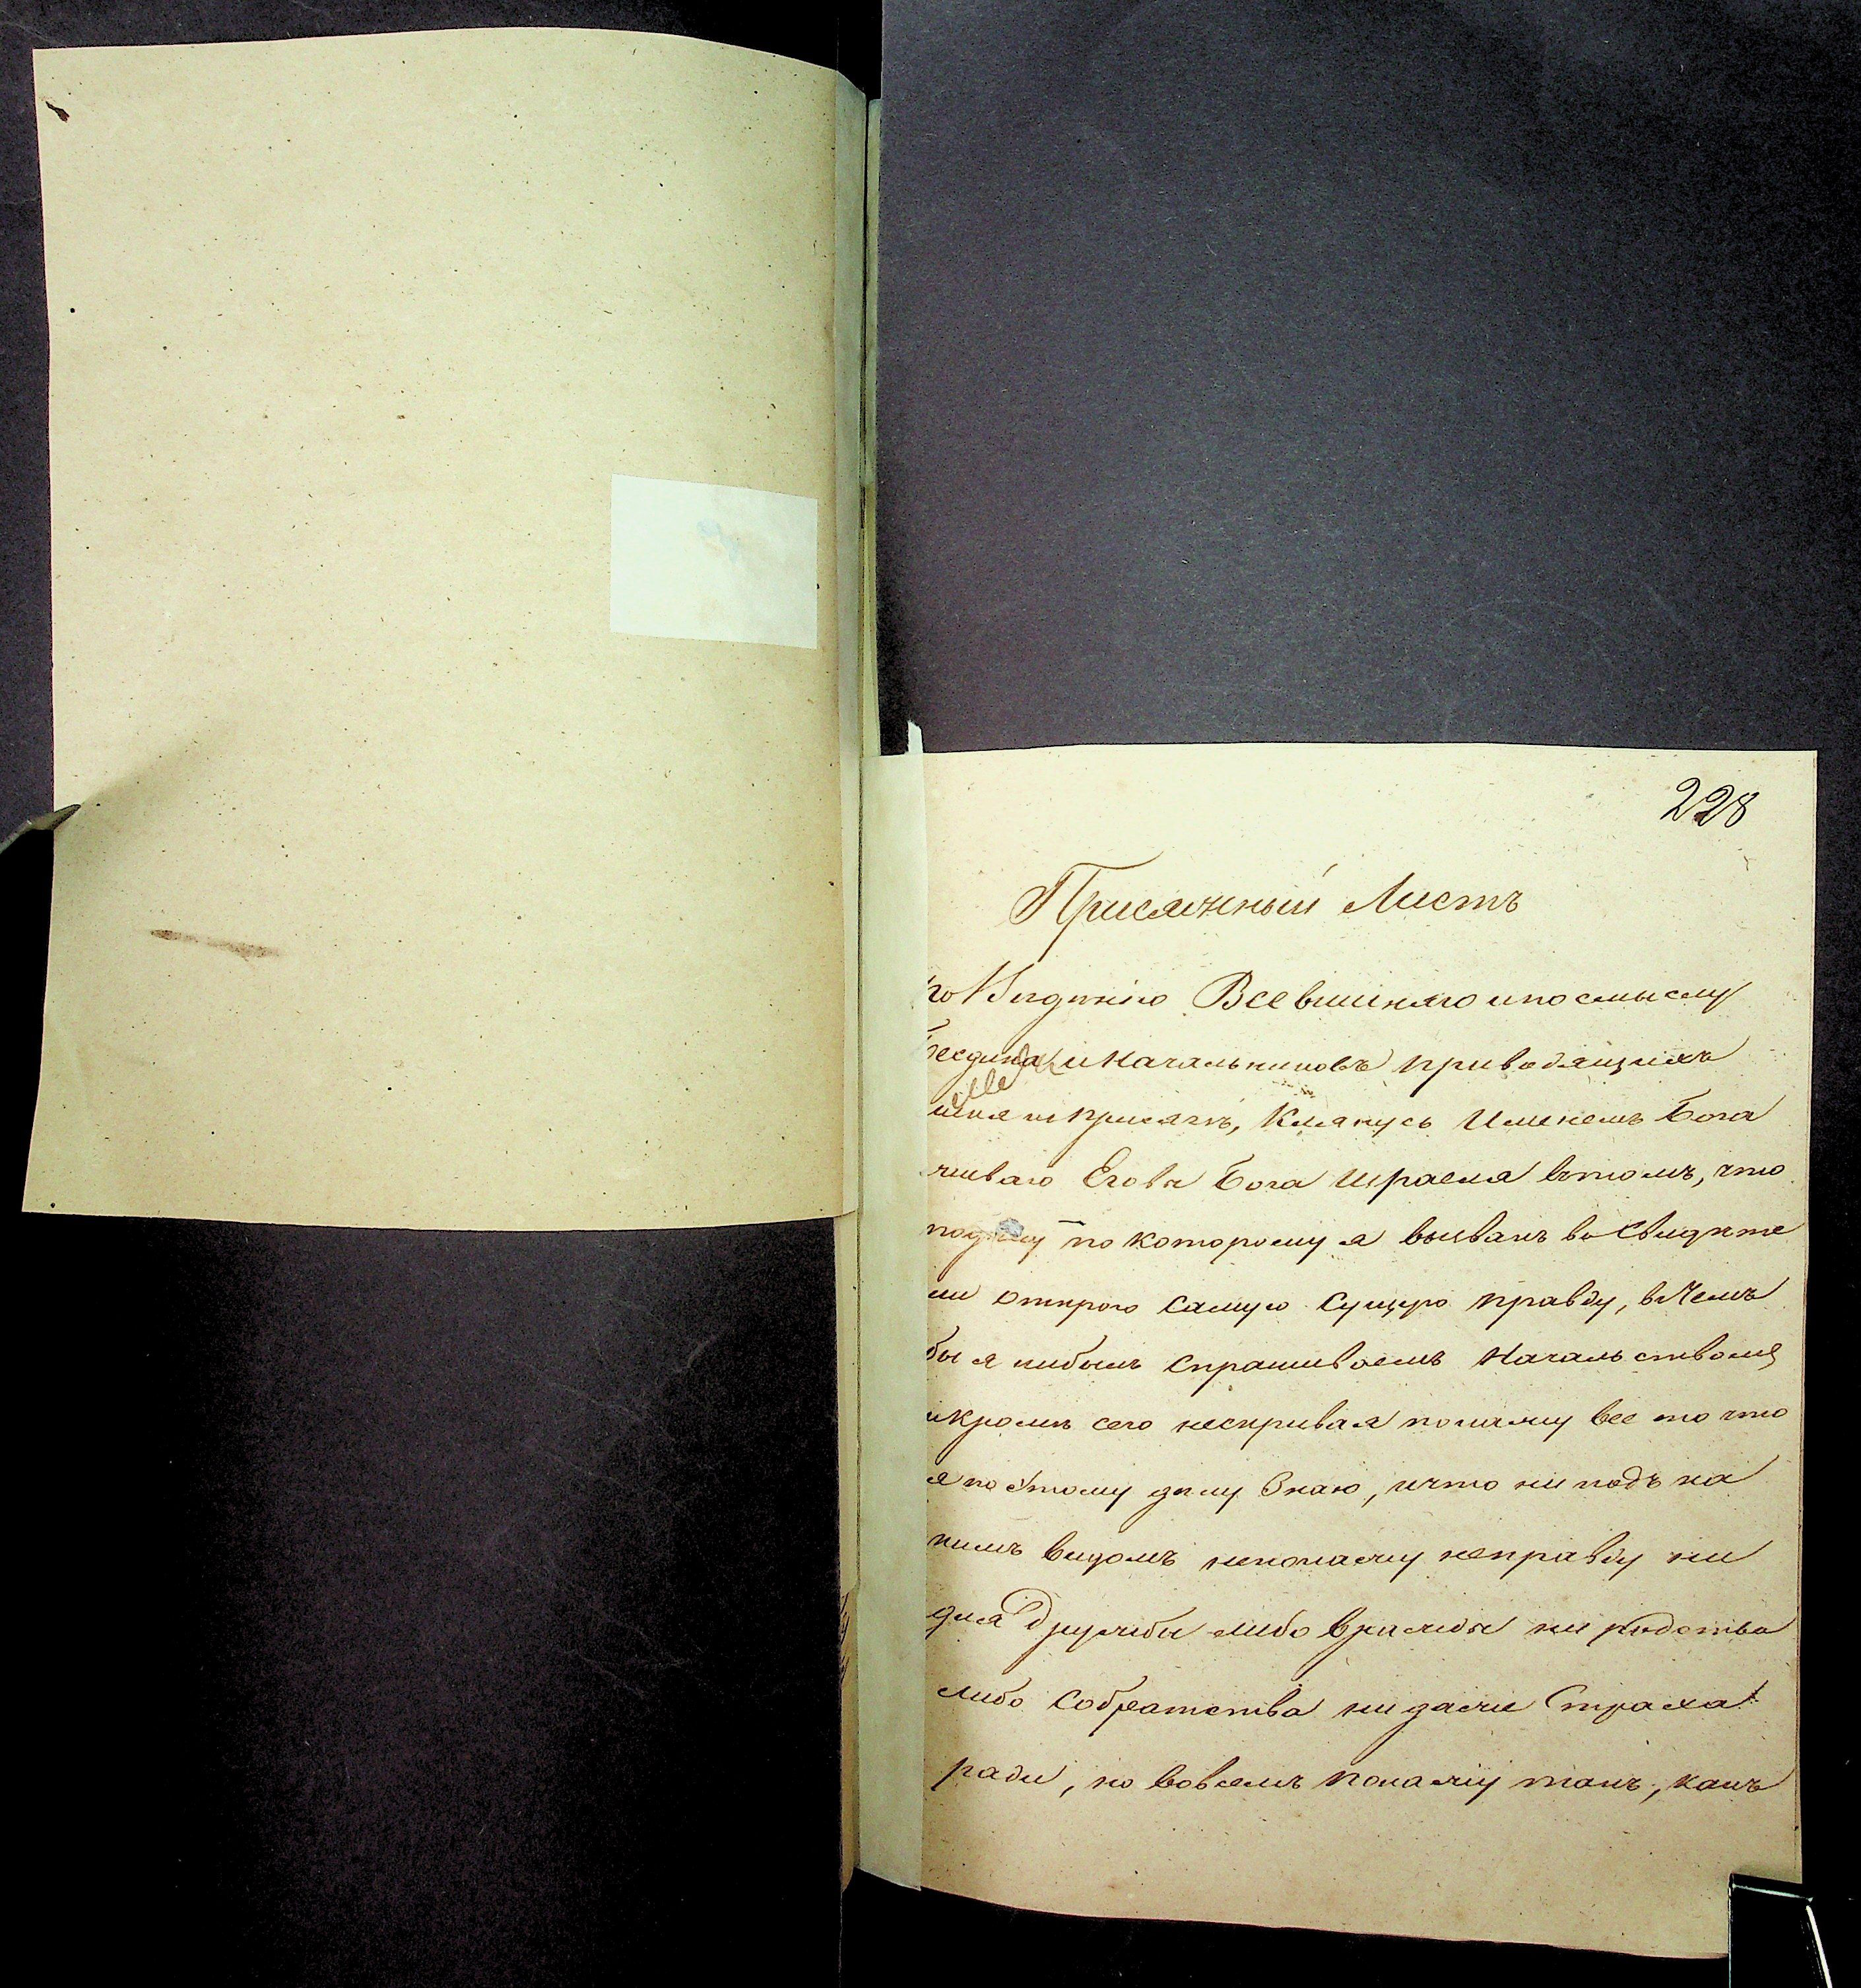 228
Присяжный Листъ
по Виденію Всевышняго и по смыслу
бесдина и Начальниковъ приводящихъ
меня к присягѣ, Клянусь Именемъ Бога
живаго Еговы Бога Израеля вътомъ, что
по делу по которому я вызванъ во Свидете
ли открою самую сущую правду, в Чемъ
бы я нибылъ спрашиваемъ Начальствомъ
и кромѣ сего нескривая покажу все то что
я по Этому делу Знаю, и что ни подъ ка
кимъ видомъ непокажу неправду ни
для Дружбы либо вражды ни родства
либо Собратства ни даже Страха
ради, но вовсемъ покажу такъ, какъ